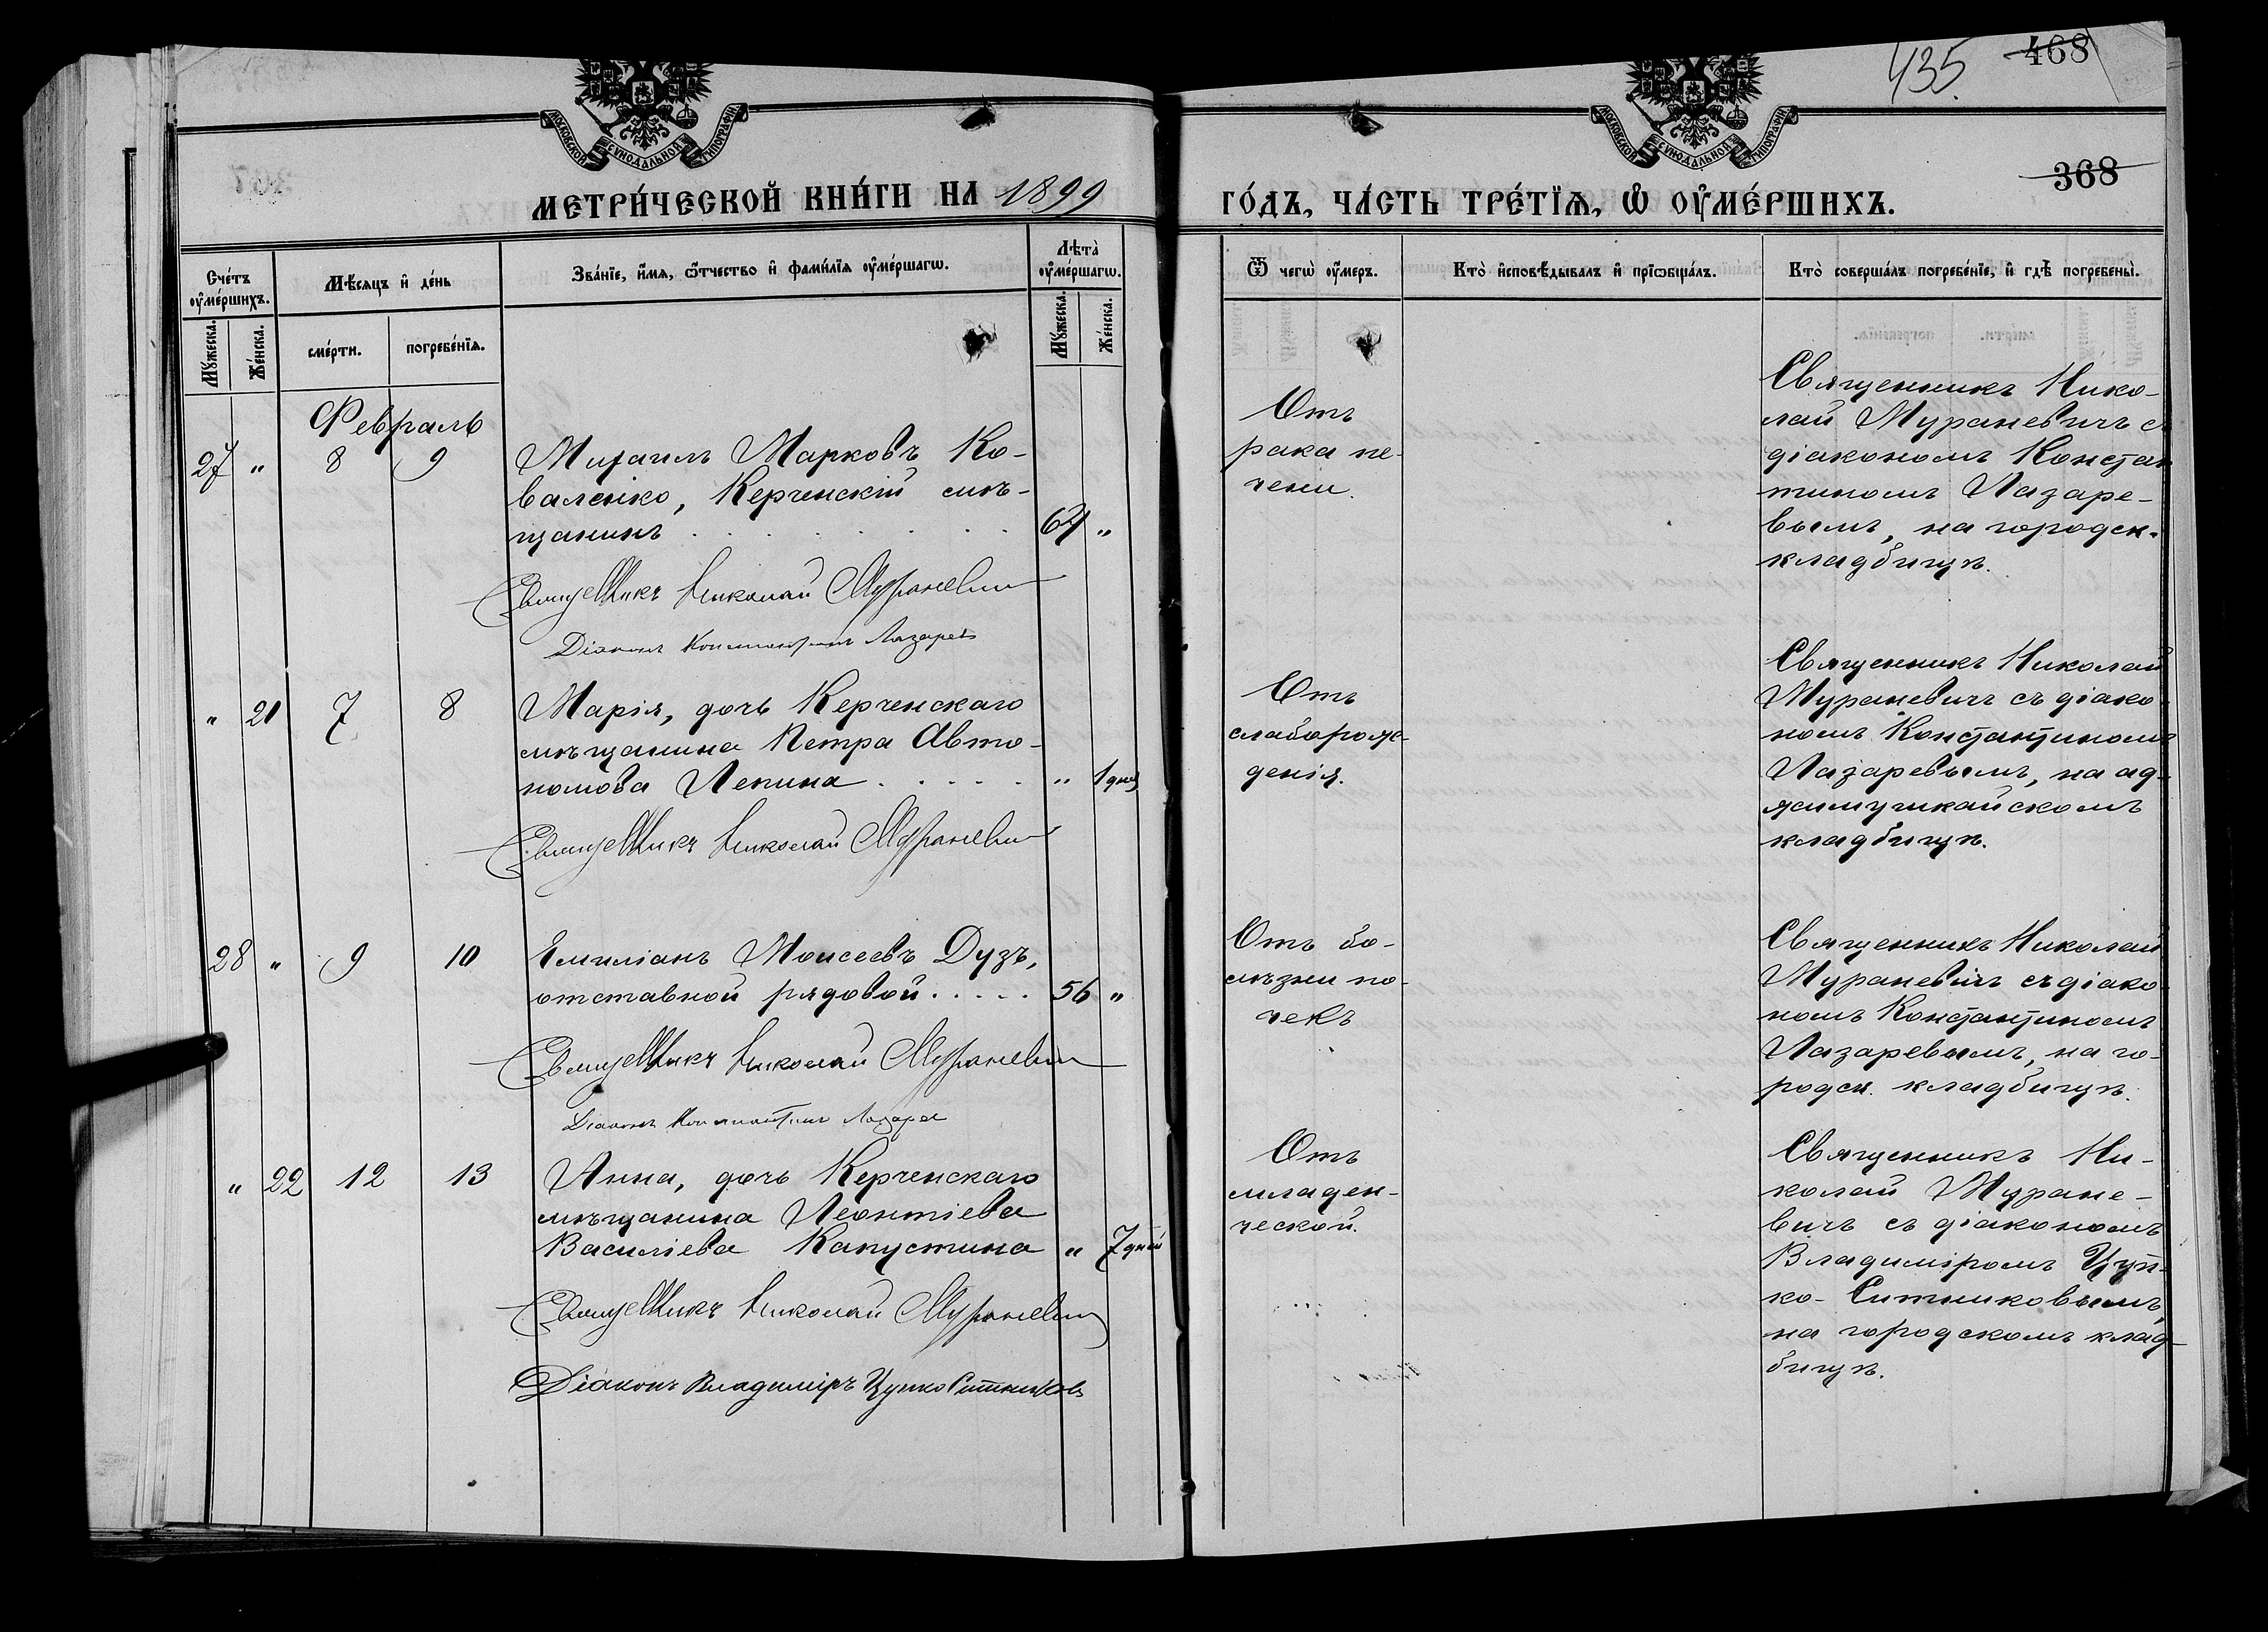 435.
468
368
МОСКОВСКОЙ СѴНОДАЛЬНОЙ ТИПОГРАФІИ
МОСКОВСКОЙ СѴНОДАЛЬНОЙ ТИПОГРАФІИ
МЕТРИ́ЧЕСКОЙ КНИ́ГИ НА 1899
ГО́ДЪ, ЧА́СТЬ ТРЕ́ТЇѦ, Ѡ҆ ОУ҆МЕ́РШИХЪ.
Сче́тъ оу҆ме́ршихъ.
Мꙋ́жеска.
Же́нска.
Мѣ́сяцъ и҆ де́нь
сме́рти.
погребе́нїѧ.
Зва́нїе, и҆́мѧ, ѻ҆́тчество и҆ фами́лїѧ оу҆ме́ршагѡ.
Лѣта̀ оу҆ме́ршагѡ.
Мꙋ́жеска.
Же́нска.
Ѿ чегѡ̀ оу҆́меръ.
Кто̀ и҆сповѣ́дывалъ и҆ прїѡбща́лъ.
Кто̀ соверша́лъ погребе́нїе, и҆ гдѣ̀ погребены̀.
Февраль
27 " 8 9
Михаилъ Марковъ Ко-
валенко, Керченскій мѣ-
щанинъ . . . . . . 64 "
Священникъ Николай Мураневич
Діаконъ Константинъ Лазаревъ
Отъ
рака пе-
чени.
Священникъ Нико-
лай Мураневичъ съ
діакономъ Констан
тиномъ Лазаре-
вымъ, на городск.
кладбищѣ.
" 21 7 8
Марія, дочь Керченскаго
мѣщанина Петра Авто-
номова Лепина . . . . . " 1 дня
Священникъ Николай Мураневич
Отъ
слаборож-
денія.
Священникъ Николай
Мураневичъ съ діако
номъ Константиномъ
Лазаревымъ, на ад-
жимушкайскомъ
кладбищѣ.
28 " 9 10
Емиліанъ Моисеевъ Дузъ,
отставной рядовой . . . . . 56 "
Священникъ Николай Мураневич
Діаконъ Константинъ Лазарев
Отъ бо-
лѣзни по-
чекъ
Священникъ Николай
Мураневичъ съ діако
номъ Константиномъ
Лазаревымъ, на го-
родск. кладбищѣ.
" 22 12 13
Анна, дочь Керченскаго
мѣщанина Леонтіева
Василіева Капустина " 7 дней
Священникъ Николай Мураневич
Діаконъ Владиміръ Цупко Ситниковъ
Отъ
младен-
ческой.
Священникъ Ни-
колай Муране-
вичъ съ діакономъ
Владиміромъ Цуп-
ко-Ситниковымъ,
на городскомъ клад-
бищѣ.